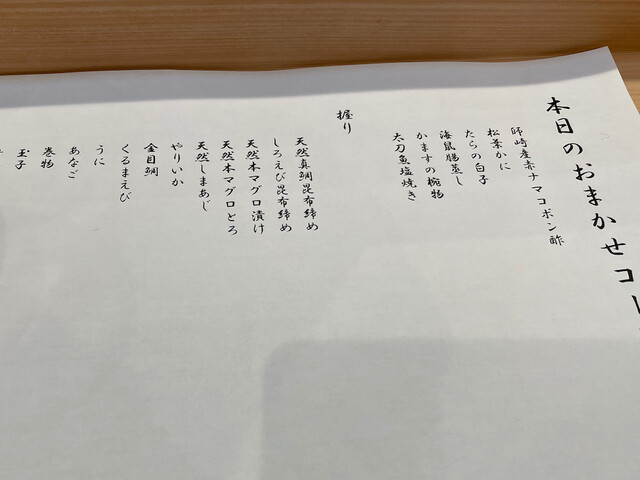 本日のおまかせコー
師崎産赤ナマコポン酢
松葉かに
たらの白子
海鼠腸蒸し
かますの椀物
太刀魚塩焼き
握り
天然真鯛昆布締め
しろえび昆布締め
天然本マグロ漬け
天然本マグロとろ
天然しまあじ
やりいか
金目鯛
くるまえび
うに
あなご
巻物
玉子